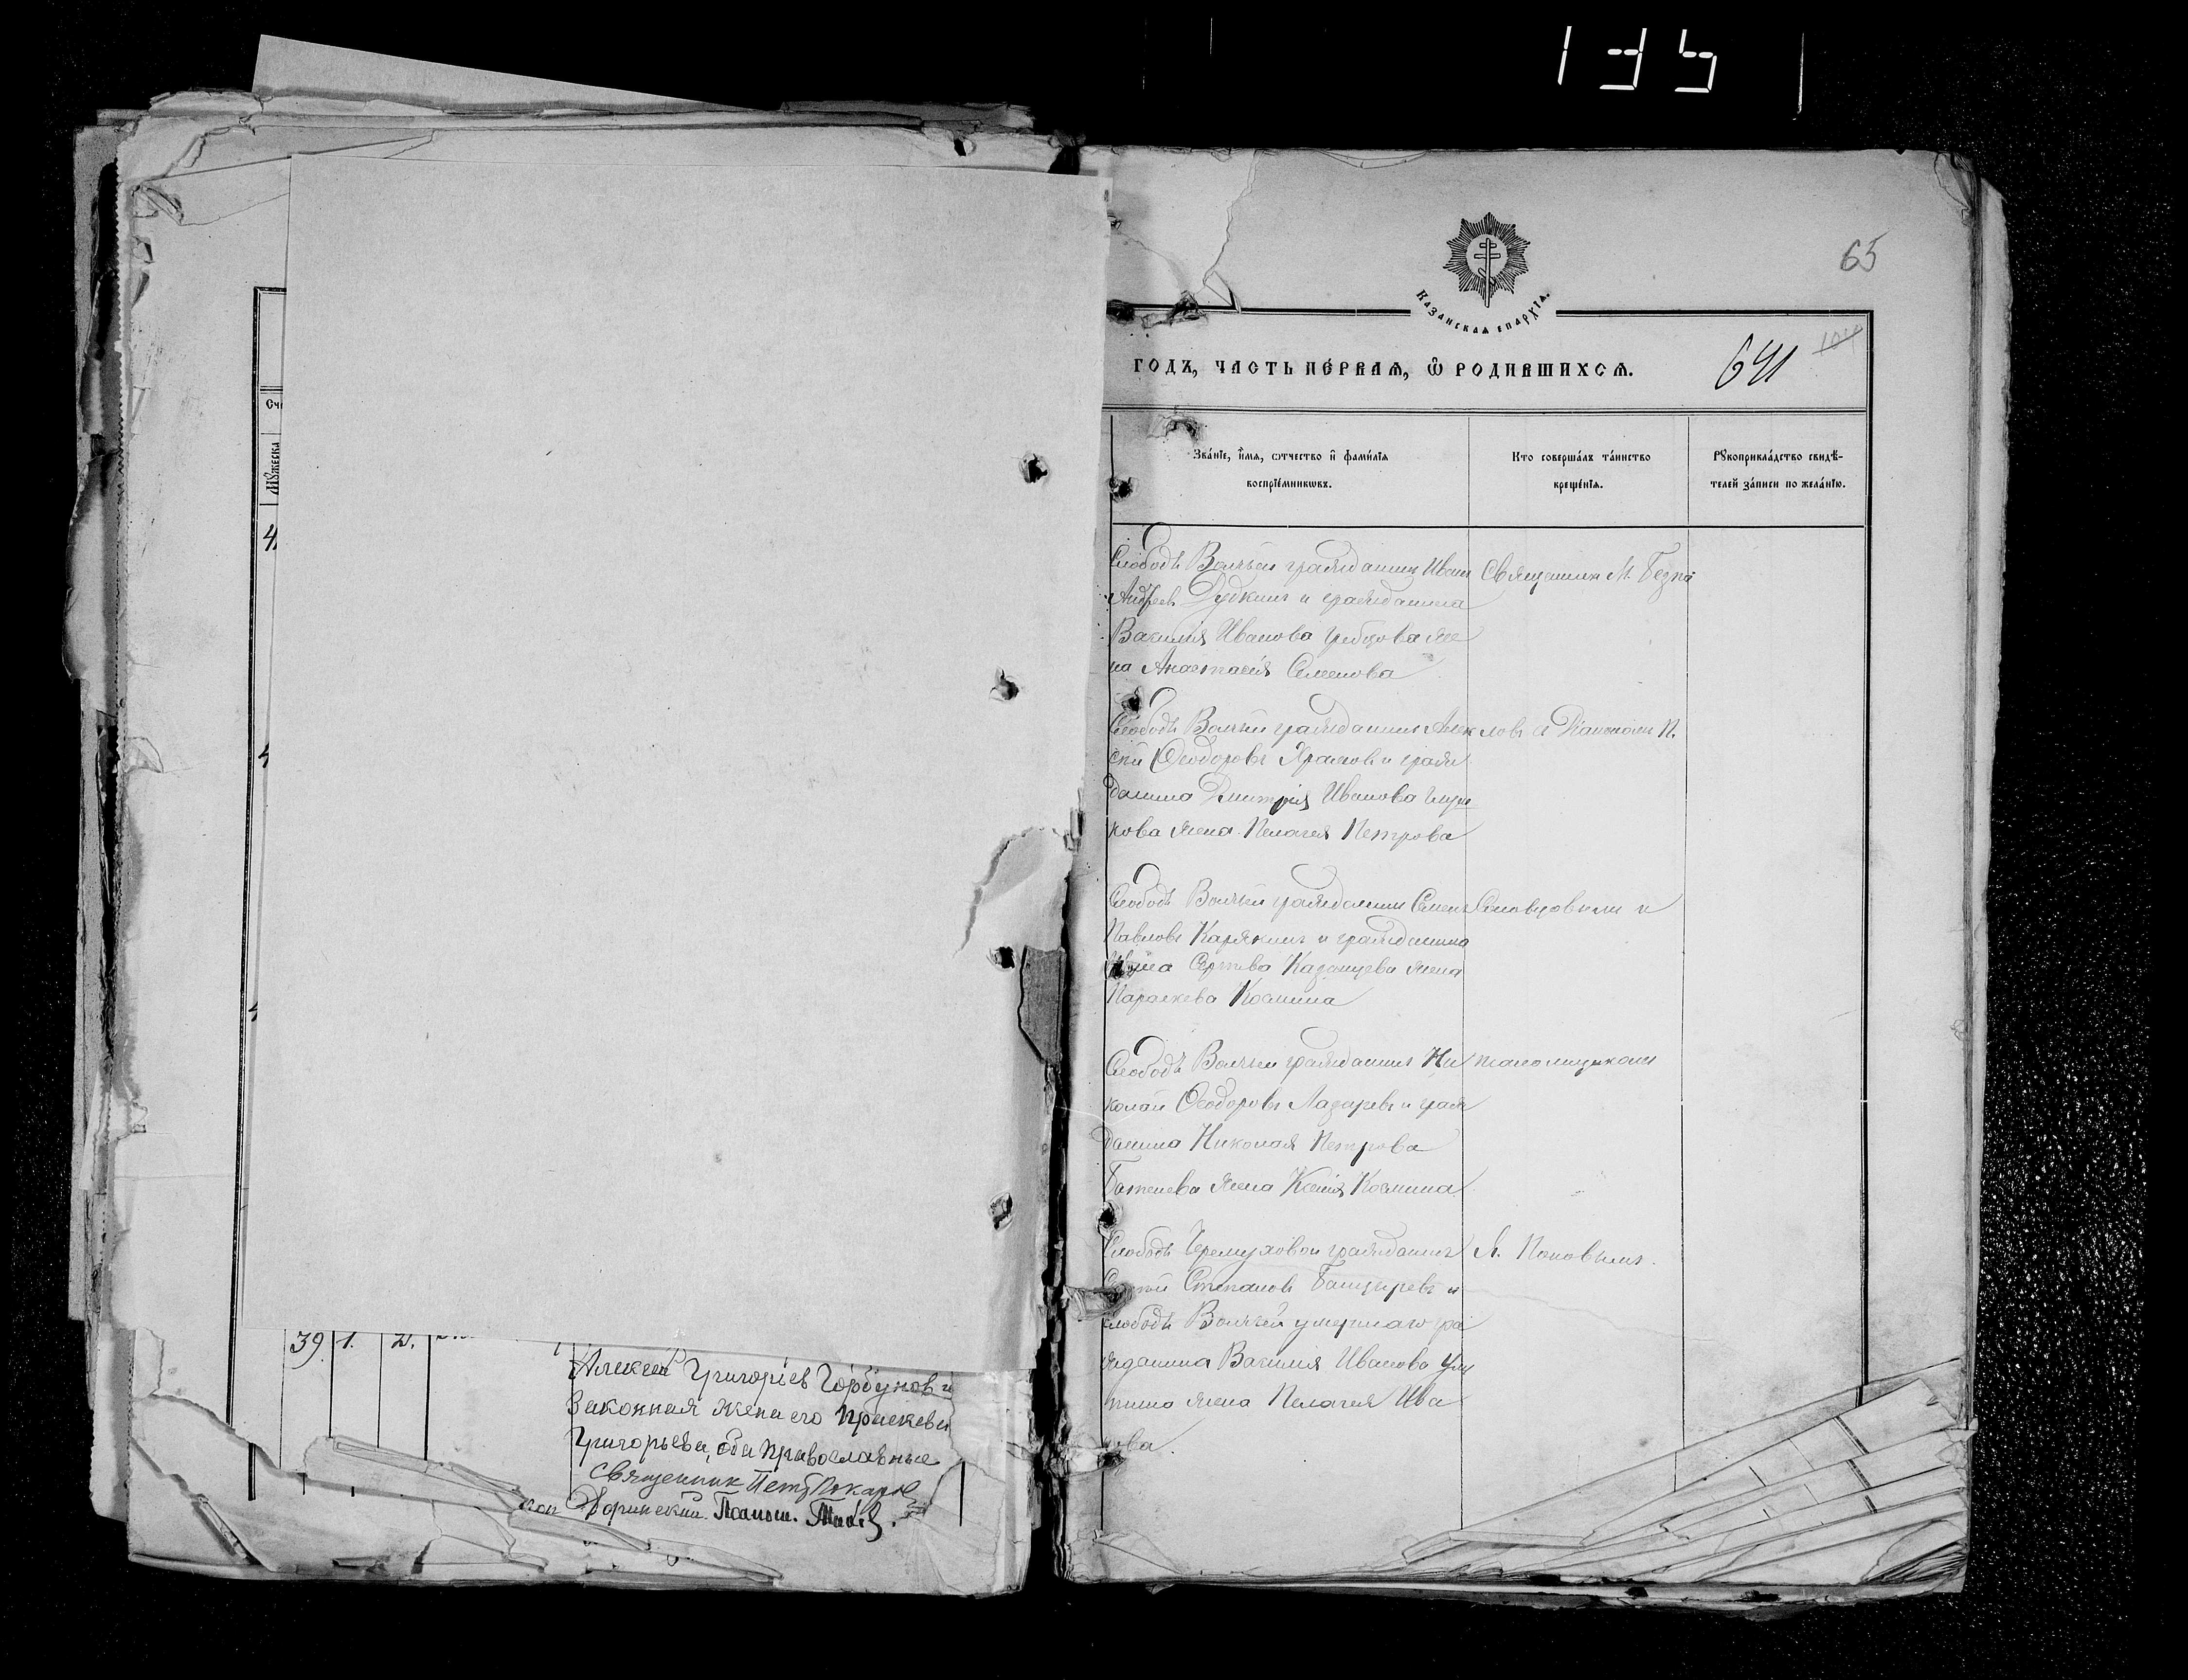 135
65
Казанская епархїѧ.
годъ, часть пе́рваѧ, ѽ родившихсѧ.
641
Счи
Мꙋжеска
Зва́нїе, и҆́мѧ, ѻтчество и҆ фами́лїѧ
воспрїе́мникѡвъ.
Кто соверша́лъ та́инство
креще́нїѧ.
Рꙋкоприкла́дство свидѣ́-
телей за́писи по жела́нїю.
Слободы Волчьей гражданин Иван
Андреев Дудкинъ и гражданина
Василія Иванова Грибцова же
на Анастасія Семенова
Священник М. Безпа
Слободы Волчьей гражданинъ Алек
сѣй Ѳеодоровъ Храмовъ и граж
данина Димитрія Иванова
кова жена Пелагея Петрова
ловъ с Діакономъ П.
Слободы Волчьей гражданин Семенъ
Павловъ Карякинъ и гражданина
Казанцева жена
Параскева Космина
Соловцовымъ и
Слободы Волчьей гражданинъ Ни
колай Ѳеодоровъ Лазаревъ и граж
данина Николая Петрова
Батенева жена Ксенія Космина
псаломщикомъ
Слободы Черемуховой гражданинъ
Степановъ Башкыревъ и
слободы Волчьей умершаго гра
жданина Василія Иванова Ули
тина жена Пелагея Ива
нова.
А. Поповымъ.
39. 1. 2.
Алексей Григорьев Горбунов и
законная жена его Праскева
Григорьева, оба православные
Священник Петр Токарев
Доринский. Псалом.